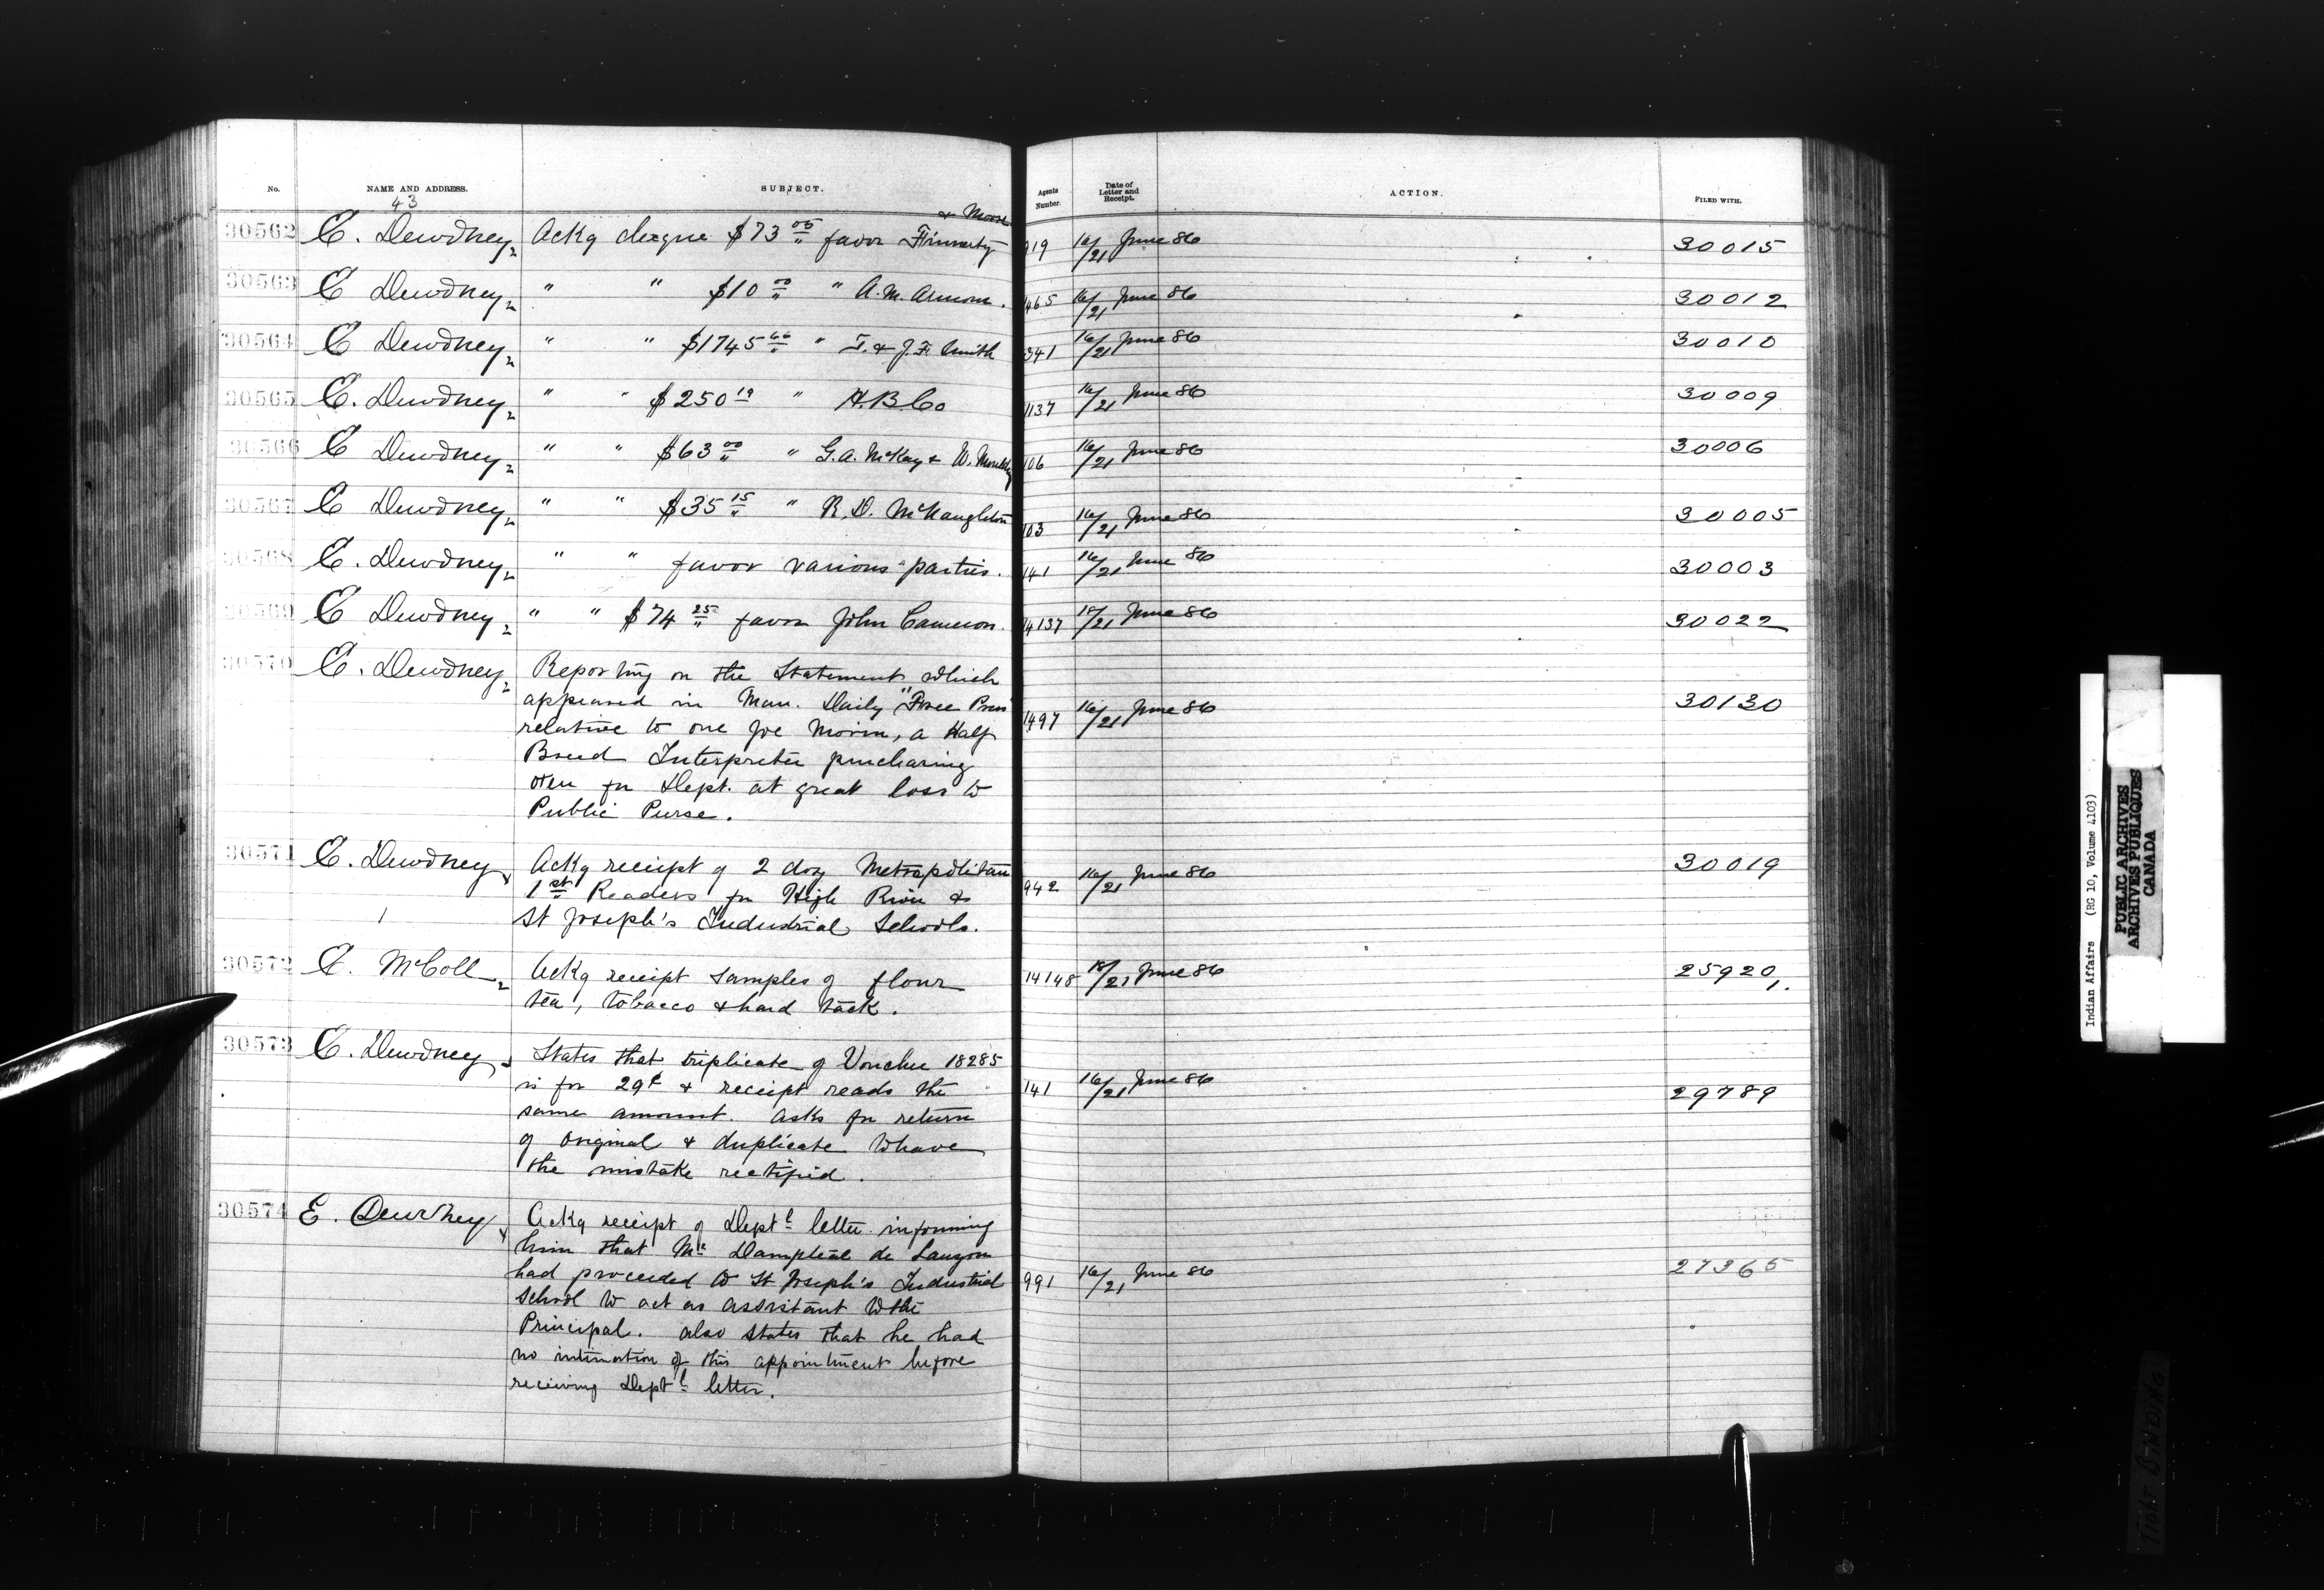 No. NAME AND ADDRESS. SUBJECT. Agents Number. Date of Letter and Receipt. ACTION. FILED WITH.
43
& Moore
30562 E. Dewdney Ackg cheque $73 05 favor Finnerty 919 16/21 June 86 30015
30563 E Dewdney " " $10 00 " A.M. 465 16/21 June 86 30012
30564 E Dewdney " " $1745 66 " T. & J.F. Smith 341 16/21 June 86 30010
30565 E. Dewdney " " $250 19 " H.B.Co 1137 16/21 June 86 30009
30566 E Dewdney " " $63 00 " G.A. McKay & W. 106 16/21 June 86 30006
30567 E Dewdney " " $35 15 " R.D. McNaughton 103 16/21 June 86 30005
30568 E. Dewdney " " favor various parties. 141 16/21 June 86 30003
30569 E Dewdney " " $74 25 favor John Cameron. 14137 18/21 June 86 30022
30570 E. Dewdney Reporting on the Statement which
appeared in Man. Daily "Free Press" 1497 16/21 June 86 30130
relative to one Joe Morin, a Half
Breed Interpreter purchasing
oxen for Dept. at great loss to
Public Purse.
30571 E. Dewdney Ackg receipt of 2 doz Metropolitan 942 16/21 June 86 30019
1st Readers for High River &
1 St Joseph's Industrial Schools.
30572 E. McColl Ackg receipt samples of flour 14148 18/21 June 86 25920/1.
tea, tobacco & hard tack.
30573 E. Dewdney States that triplicate of Voucher 18285
is for 29¢ & receipt reads the 141 16/21 June 86 29789
same amount. Asks for return
of original & duplicate to have
the mistake rectified.
30574 E. Dewdney Ackg receipt of Deptl letter informing
him that Mr de Lauzon
had proceeded to St Joseph's Industrial 991 16/21 June 86 27365
School to act as assistant to the
Principal. also states that he had
no intimation of this appointment before
receiving Deptl letter.
Indian Affairs (RG 10, Volume 4103)
PUBLIC ARCHIVES
ARCHIVES PUBLIQUES
CANADA
TIGHT BINDING